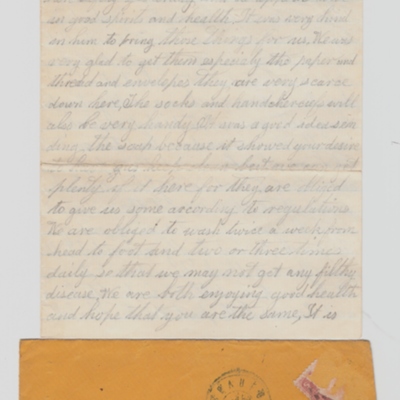 in good spirits and health. It was very kind
on him to bring those things for us. We was
very glad to get them especialy the paper and
thread and envelopes they are very scarce
down here, The socks and handkercheifs will
also be very handy, It was a good idea sen
ding the soap because it showed your desire
plenty of it here for they are
to give us some according to regulations
We are obliged to wash twice a week from
head to foot and two or three times
daily so that we may not get any filthy
disease, We are both enjoying good health
and hope that you are the same, It is